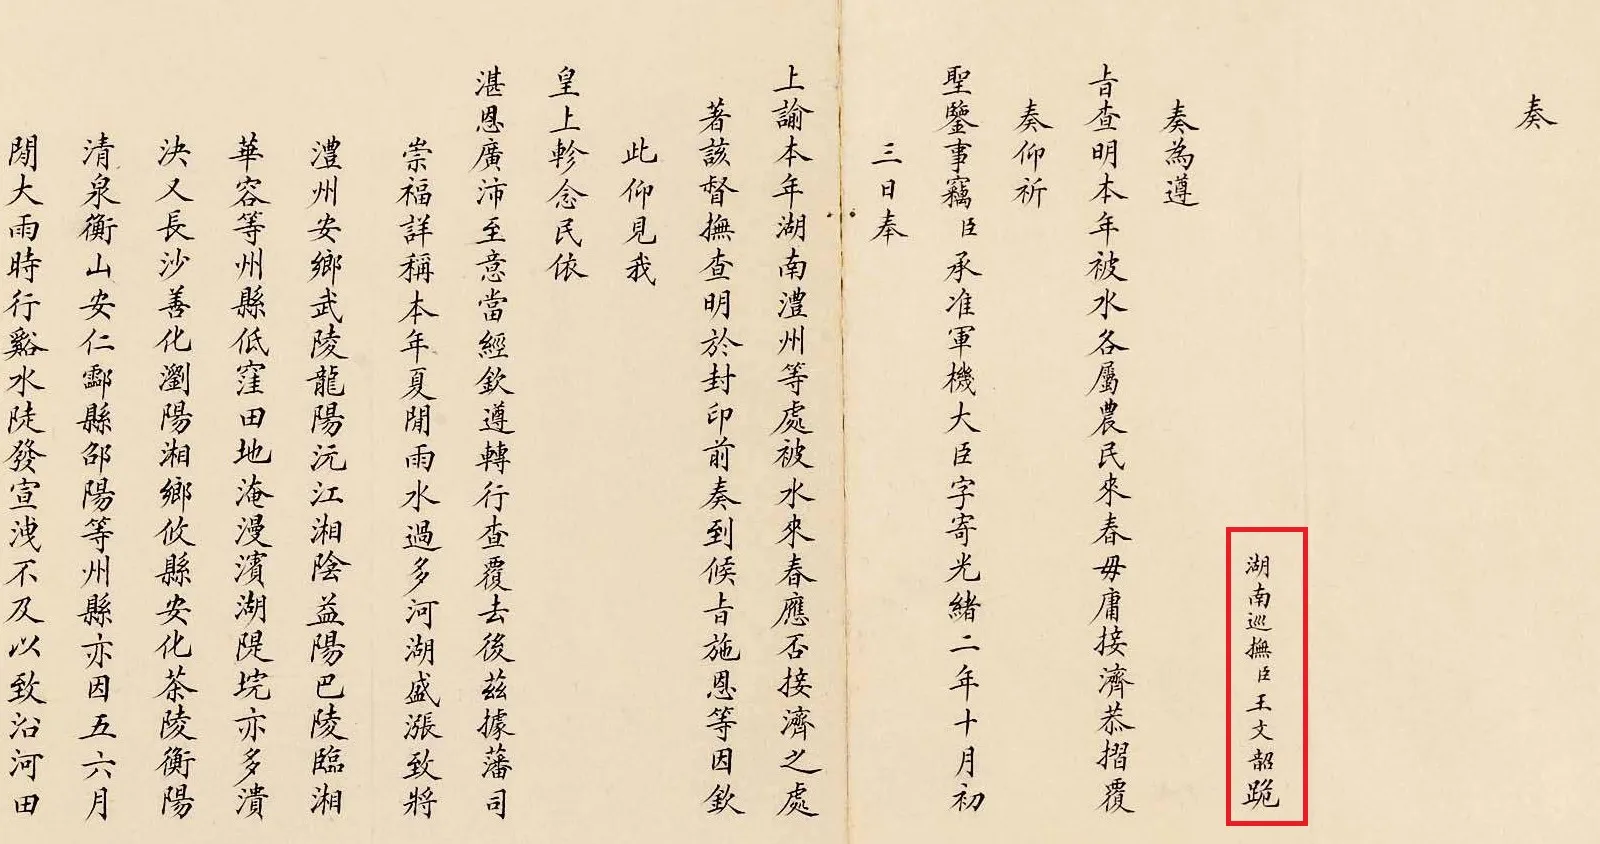 奏
湖南巡撫臣王文韶跪
奏為遵
旨查明本年被水各屬農民來春毋庸接濟恭摺覆
奏仰祈
聖鑒事竊臣承准軍機大臣字寄光緒二年十月初
三日奉
上諭本年湖南澧州等處被水來春應否接濟之處
著該督撫查明於封印前奏到候旨施恩等因欽
此仰見我
皇上軫念民依
湛恩廣沛至意當經欽遵轉行查覆去後茲據藩司
崇福詳稱本年夏閒雨水過多河湖盛漲致將
澧州安鄉武陵龍陽沅江湘陰益陽巴陵臨湘
華容等州縣低窪田地淹漫濱湖隄垸亦多潰
決又長沙善化瀏陽湘鄉攸縣安化茶陵衡陽
清泉衡山安仁酃縣邵陽等州縣亦因五六月
閒大雨時行谿水陡發宣洩不及以致沿河田